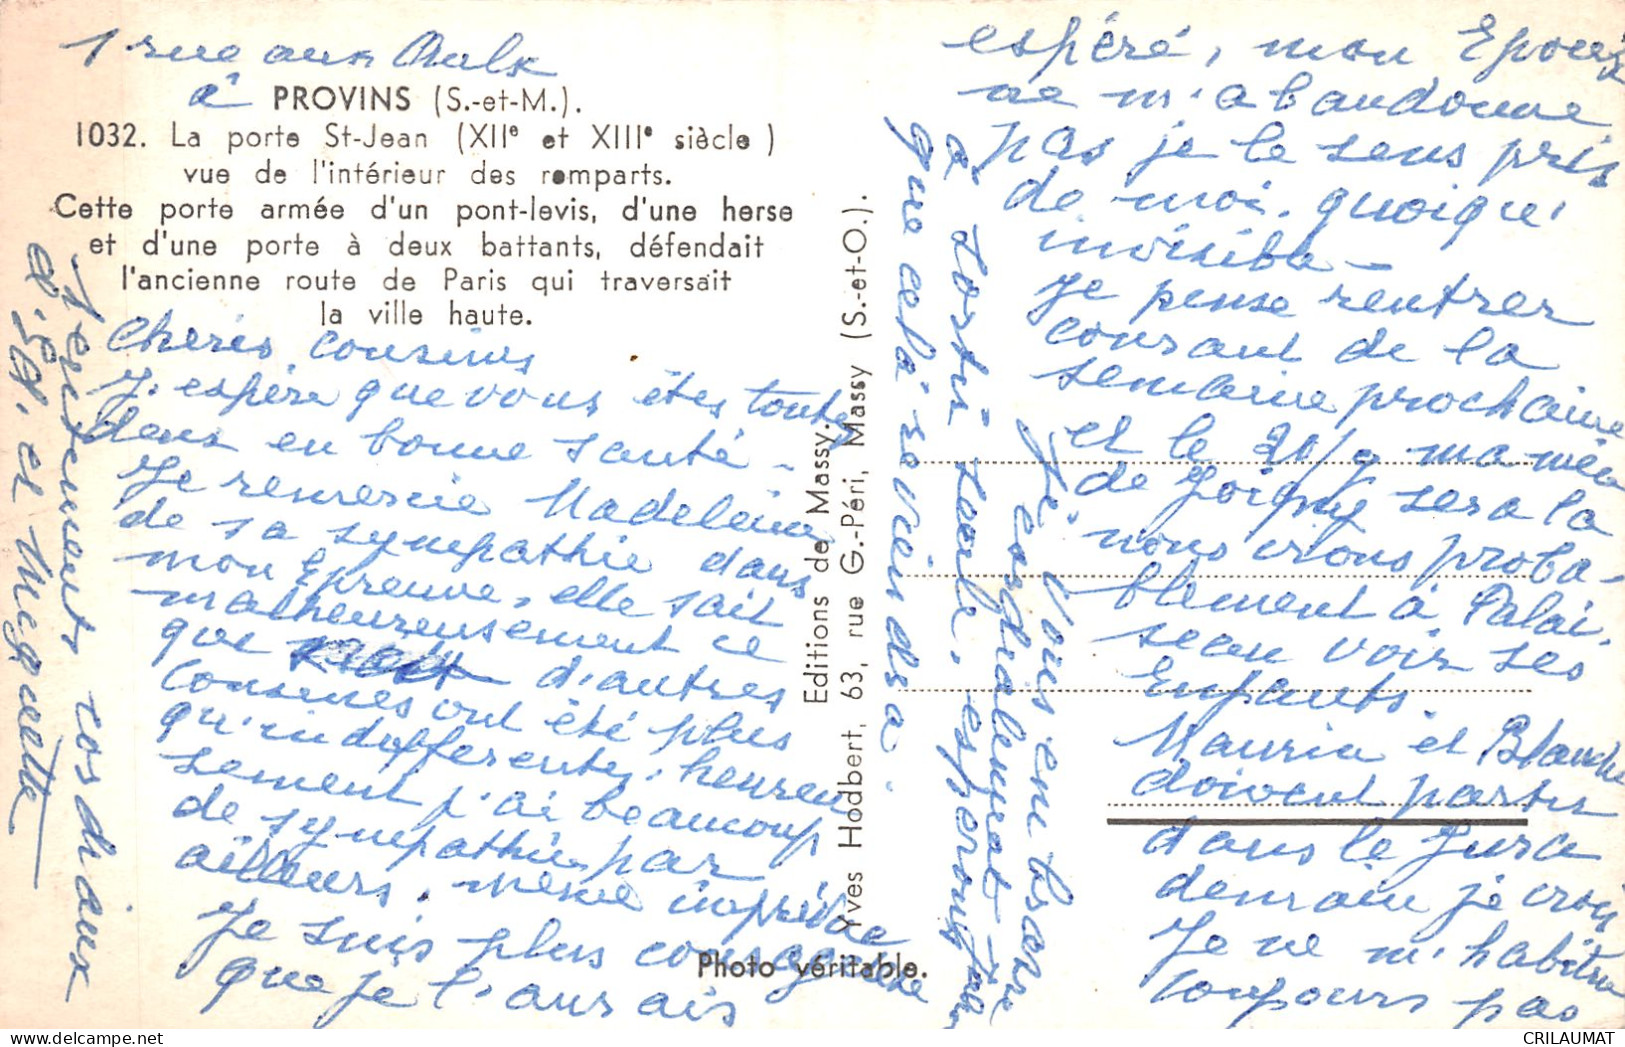 1 rue aux Aulx
à PROVINS (S.-et-M.).
1032. La porte St-Jean (XIIe et XIIIe siècle)
vue de l'intérieur des remparts.
Cette porte armée d'un pont-levis, d'une herse
et d'une porte à deux battants, défendait
l'ancienne route de Paris qui traversait
la ville haute.
Chères cousines
J'espère que vous êtes toutes
deux en bonne santé -
Je remercie Madeleine
de sa sympathie dans
mon Epreuve, elle sait
malheureusement ce
que d'autres
Cousines ont été plus
qu'indifférentes, heureu
sement j'ai beaucoup
de sympathie par
ailleurs, même imprévue
Je suis plus courageuse
que je l'aurais
espéré, mon Epoux
ne m'abandonne
pas je le sens près
de moi, quoiqu'
invisible -
Je pense rentrer
courant de la
semaine prochaine
et le 20/9 ma nièce
de Joigny sera là
nous irons proba-
blement à Palai-
seau voir ses
Enfants.
Maurice et Blanche
doivent partir
dans le Jura
demain je crois
Je ne m'habitue
toujours pas
à sortir seule, espérons
que cela se viendra.
Je Vous embrasse
cordialement
affectueusement cordiaux
et Marguerite
Editions de Massy.
Yves Hodbert, 63, rue G.-Péri, Massy (S.-et-O.).
Photo véritable.
CRILAUMAT